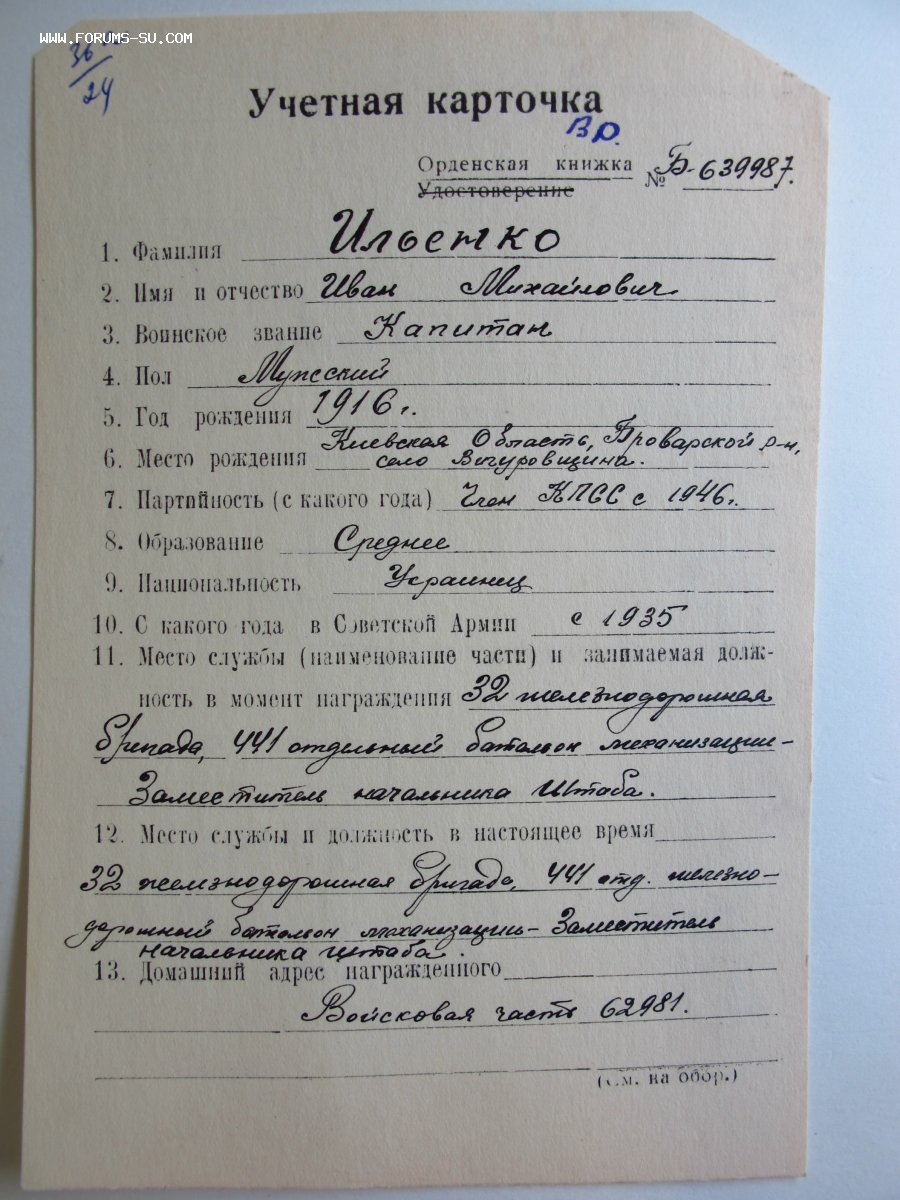 www.forums-su.com
36
24
Учетная карточка
Орденская книжка
Удостоверение
№ Б-639987.
1. Фамилия Ильенко
2. Имя и отчество Иван Михайлович
3. Воинское звание Капитан
4. Пол Мужский
5. Год рождения 1916 г.
Киевская Область, Броварской р-н,
6. Место рождения село Вигуровщина.
7. Партийность (с какого года) Член КПСС с 1946 г.
8. Образование Среднее
9. Национальность Украинец
10. С какого года в Советской Армии с 1935
11. Место службы (наименование части) и занимаемая долж-
ность в момент награждения 32 железнодорожная
бригада, 441 отдельный батальон механизации-
Заместитель начальника Штаба.
12. Место службы и должность в настоящее время
32 железнодорожная бригада, 441 отд. железно-
дорожный батальон механизации- Заместитель
начальника штаба.
13. Домашний адрес награжденного
Войсковая часть 62981.
(См. на обор.)